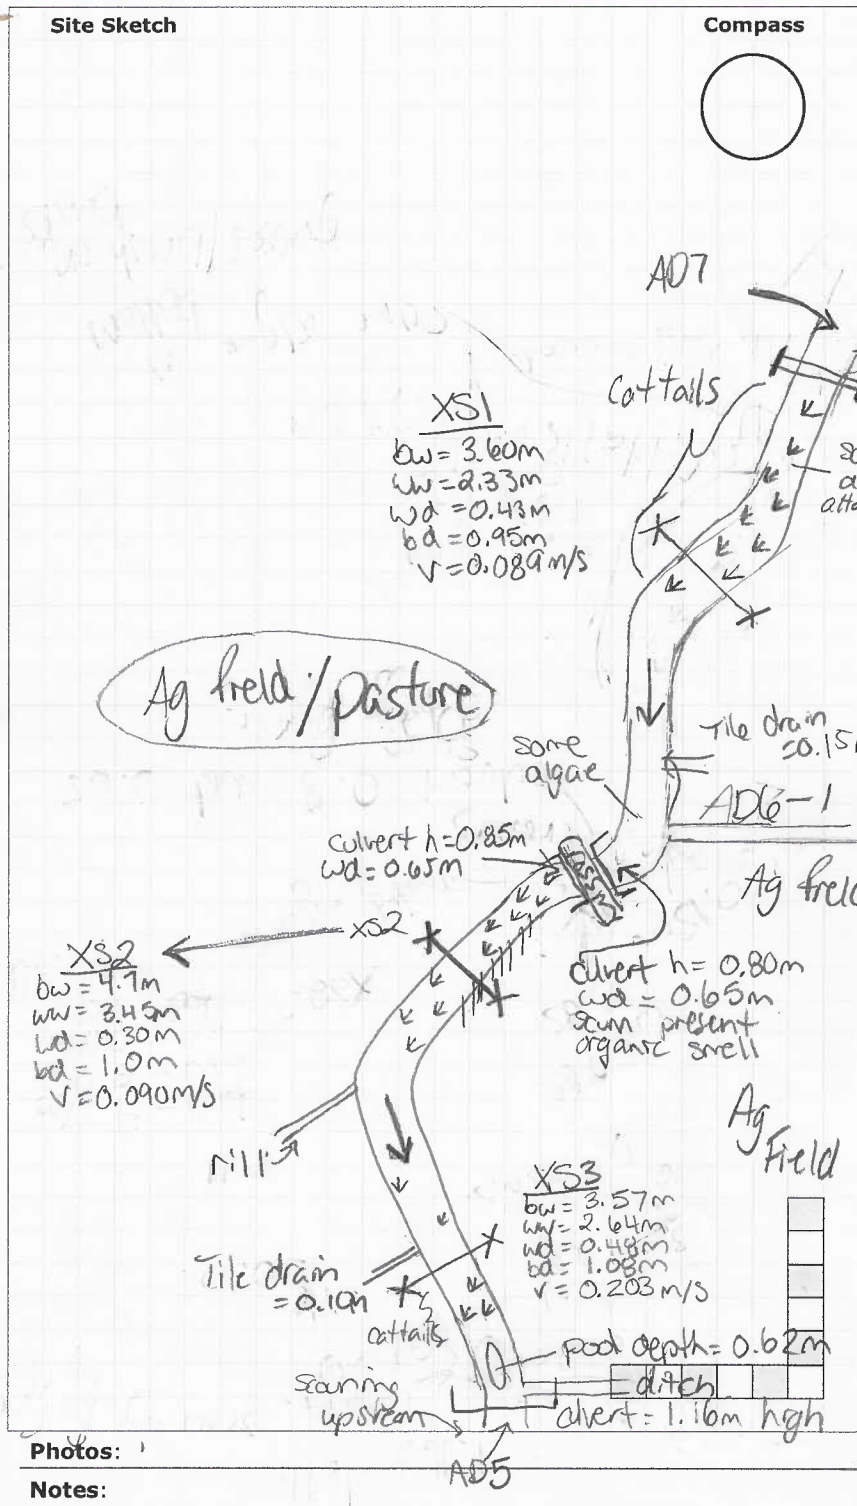 Site Sketch
Compass
AD7
Cattails
XS1
bw = 3.60m
ww = 2.33m
wd = 0.43m
bd = 0.95m
v = 0.089m/s
Ag field / pasture
some
algae
Tile drain
= 0.15
AD6-1
culvert h = 0.85m
wd = 0.65m
Ag field
XS2
XS2
bw = 4.7m
ww = 3.45m
wd = 0.30m
bd = 1.0m
v = 0.090m/s
culvert h = 0.80m
wd = 0.65m
scum present
organic smell
rill
Ag
Field
XS3
bw = 3.57m
ww = 2.64m
wd = 0.48m
bd = 1.08m
v = 0.203 m/s
Tile drain
= 0.10m
cattails
pool depth = 0.62m
ditch
scouring
upstream
culvert = 1.16m high
AD5
Photos:
Notes: